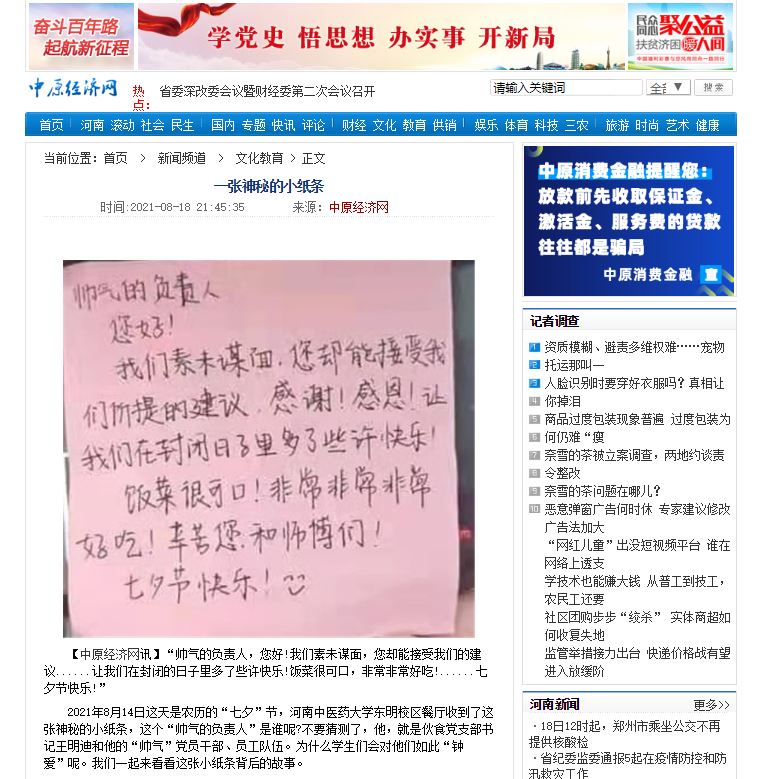 奋斗百年路
起航新征程
学党史 悟思想 办实事 开新局
民众
同心
聚公益
扶贫济困
暖人间
中原经济网
热点:
省委深改委会议暨财经委第二次会议召开
请输入关键词
搜 索
首页 河南 滚动 社会 民生 国内 专题 快讯 评论 财经 文化 教育 供销 娱乐 体育 科技 三农 旅游 时尚 艺术 健康
当前位置：首页 > 新闻频道 > 文化教育 > 正文
一张神秘的小纸条
时间:2021-08-18 21:45:35 来源：中原经济网
帅气的负责人
您好!
我们素未谋面,您却能接受我
们所提的建议,感谢!感恩!让
我们在封闭日子里多了些许快乐!
饭菜很可口!非常非常非常
好吃!辛苦您和师傅们!
七夕节快乐!
【中原经济网讯】“帅气的负责人，您好!我们素未谋面，您却能接受我们的建
议......让我们在封闭的日子里多了些许快乐!饭菜很可口，非常非常好吃!......七
夕节快乐!”
2021年8月14日这天是农历的“七夕”节，河南中医药大学东明校区餐厅收到了这
张神秘的小纸条，这个“帅气的负责人”是谁呢?不要猜测了，他，就是伙食党支部书
记王明迪和他的“帅气”党员干部、员工队伍。为什么学生们会对他们如此“钟
爱”呢。我们一起来看看这张小纸条背后的故事。
中原消费金融提醒您：
放款前先收取保证金、
激活金、服务费的贷款
往往都是骗局
中原消费金融 宣
记者调查
1 资质模糊、避责多维权难……宠物
2 托运那叫一
3 人脸识别时要穿好衣服吗？真相让
4 你掉泪
5 商品过度包装现象普遍 过度包装为
6 何仍难“瘦
7 奈雪的茶被立案调查，两地约谈责
8 令整改
9 奈雪的茶问题在哪儿？
10 恶意弹窗广告何时休 专家建议修改
广告法加大
“网红儿童”出没短视频平台 谁在
网络上透支
学技术也能赚大钱 从普工到技工，
农民工还要
社区团购步步“绞杀” 实体商超如
何收复失地
监管举措接力出台 快递价格战有望
进入放缓阶
河南新闻 更多>>
· 18日12时起，郑州市乘坐公交不再
提供核酸检
· 省纪委监委通报5起在疫情防控和防
汛救灾工作